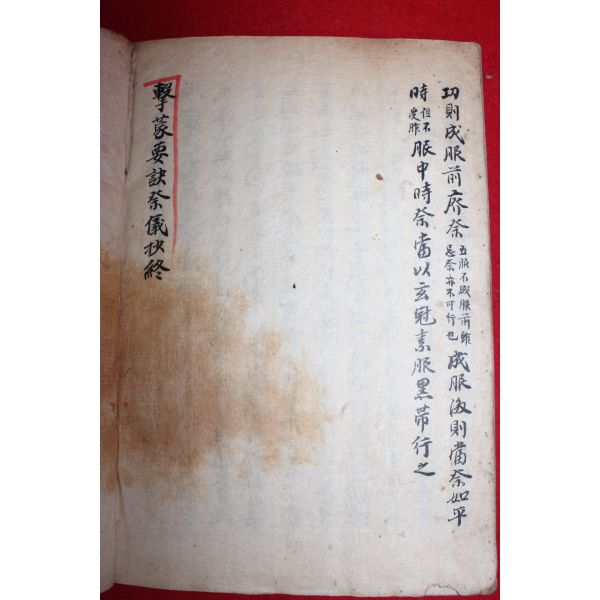 功則成服前廢祭五服未成服前雖忌祭亦不可行也成服後則當祭如平
時但不受胙服中時祭當以玄冠素服黑帶行之
擊蒙要訣祭儀抄終